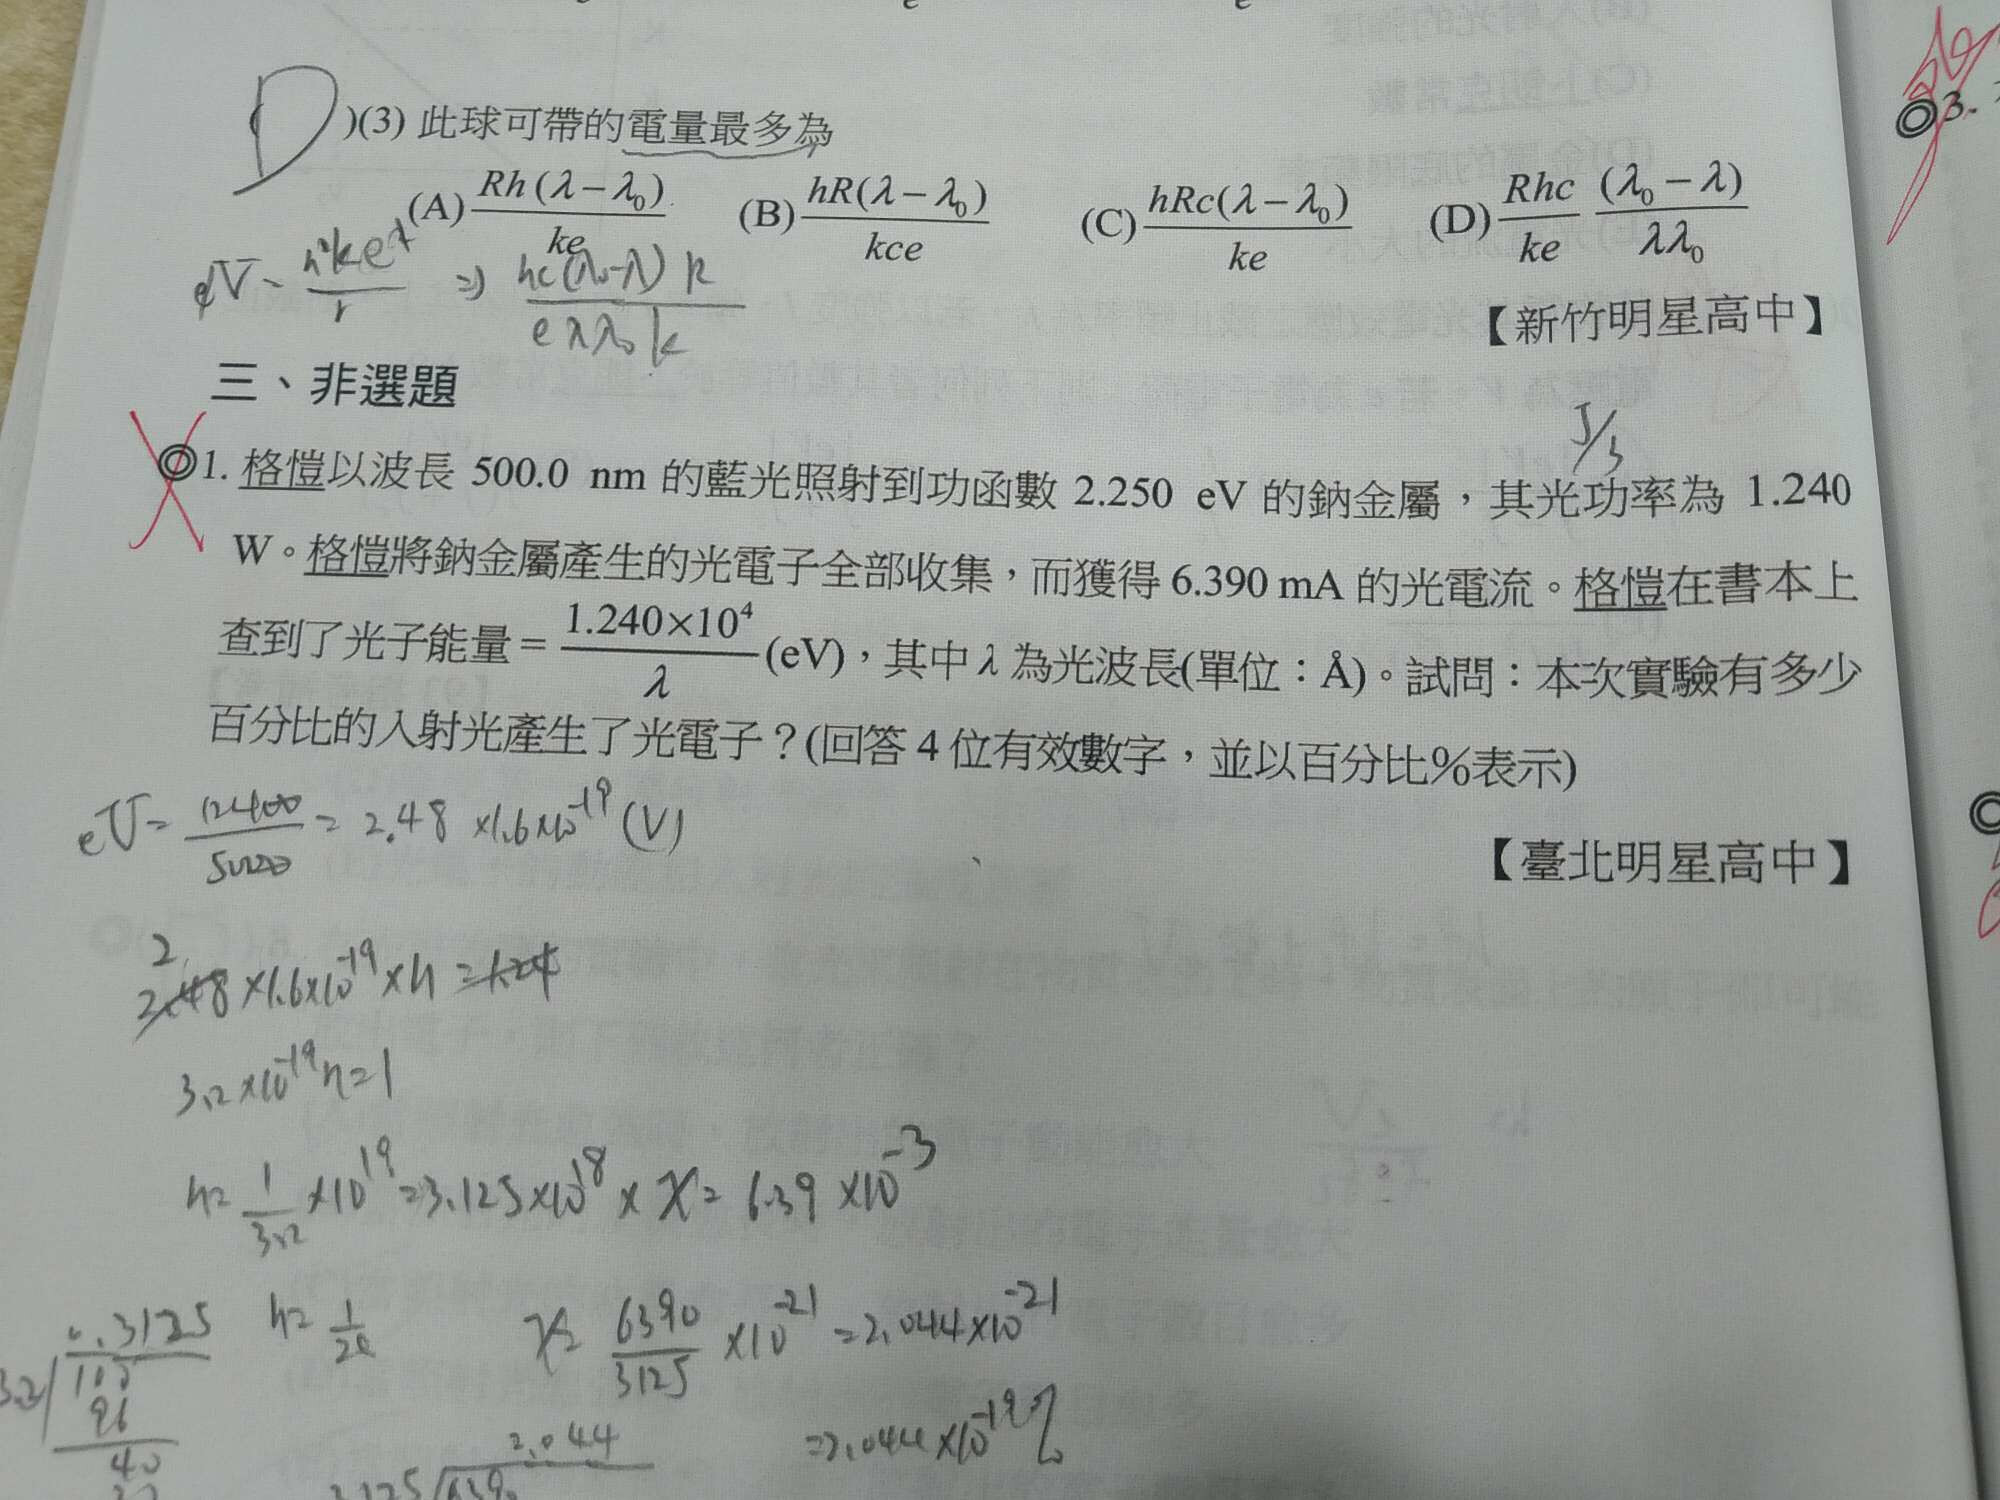 D )(3) 此球可帶的電量最多為
(A) Rh(λ−λ₀)/ke (B) hR(λ−λ₀)/kce (C) hRc(λ−λ₀)/ke (D) Rhc/ke (λ₀−λ)/λλ₀
⇒ hc(λ₀-λ)R/eλλ₀k
【新竹明星高中】
三、非選題
J/s
◎1. 格愷以波長 500.0 nm 的藍光照射到功函數 2.250 eV 的鈉金屬,其光功率為 1.240
W。格愷將鈉金屬產生的光電子全部收集,而獲得 6.390 mA 的光電流。格愷在書本上
查到了光子能量=1.240×10⁴/λ(eV),其中 λ 為光波長(單位:Å)。試問:本次實驗有多少
百分比的入射光產生了光電子?(回答 4 位有效數字,並以百分比%表示)
eV= 12400/5000 = 2.48 ×1.6×10⁻¹⁹ (V)
【臺北明星高中】
2
2.48 ×1.6×10⁻¹⁹ ×n =1.24
3.2×10⁻¹⁹n=1
n= 1/3.2 ×10¹⁹=3.125×10¹⁸× x= 6.39 ×10⁻³
x= 6390/3125 ×10⁻²¹ =2.044×10⁻²¹
=2.044×10⁻¹⁹%
0.3125
96
40
2.044
◎3.